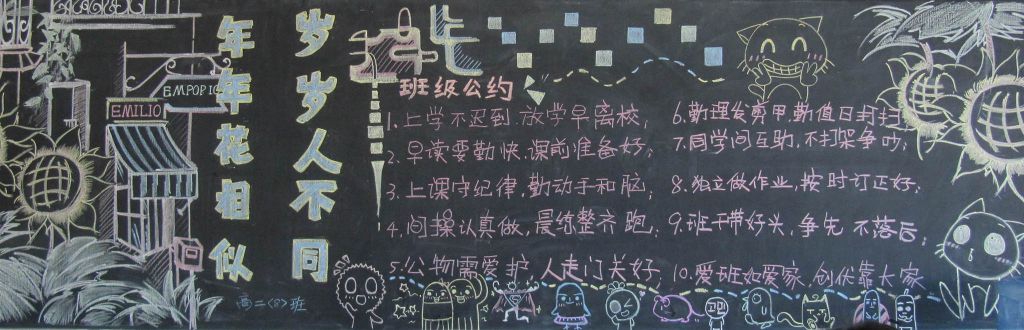 EMPOPIO
EMILIO
年年花相似
岁岁人不同
高二〈8〉班
班级公约
1.上学不迟到.放学早离校;
2.早读要勤快,课前准备好;
3.上课守纪律,勤动手和脑;
4.间操认真做,晨练整齐跑;
5.公物需爱护,人走门关好;
6.勤理发剪甲,勤值日打扫;
7.同学间互助,不打架争吵;
8.独立做作业,按时订正好;
9.班干带好头,争先不落后;
10.爱班如爱家,创优靠大家